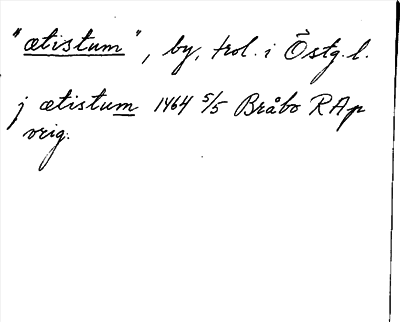 "ætistum", by, trol. i Östg.l.
j ætistum 1464 5/5 Bråbo RAp
orig.